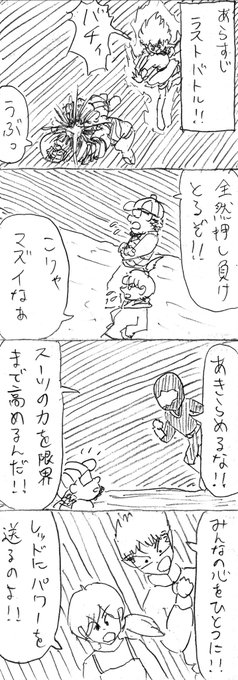 あらすじ
ラストバトル!!
バチィ
うぶっ
全然押し負け
とるぞ!!
こりゃ
マズイなぁ
あきらめるな!!
スーツの力を限界
まで高めるんだ!!
みんなの心をひとつに!!
レッドにパワーを
送るのよ!!